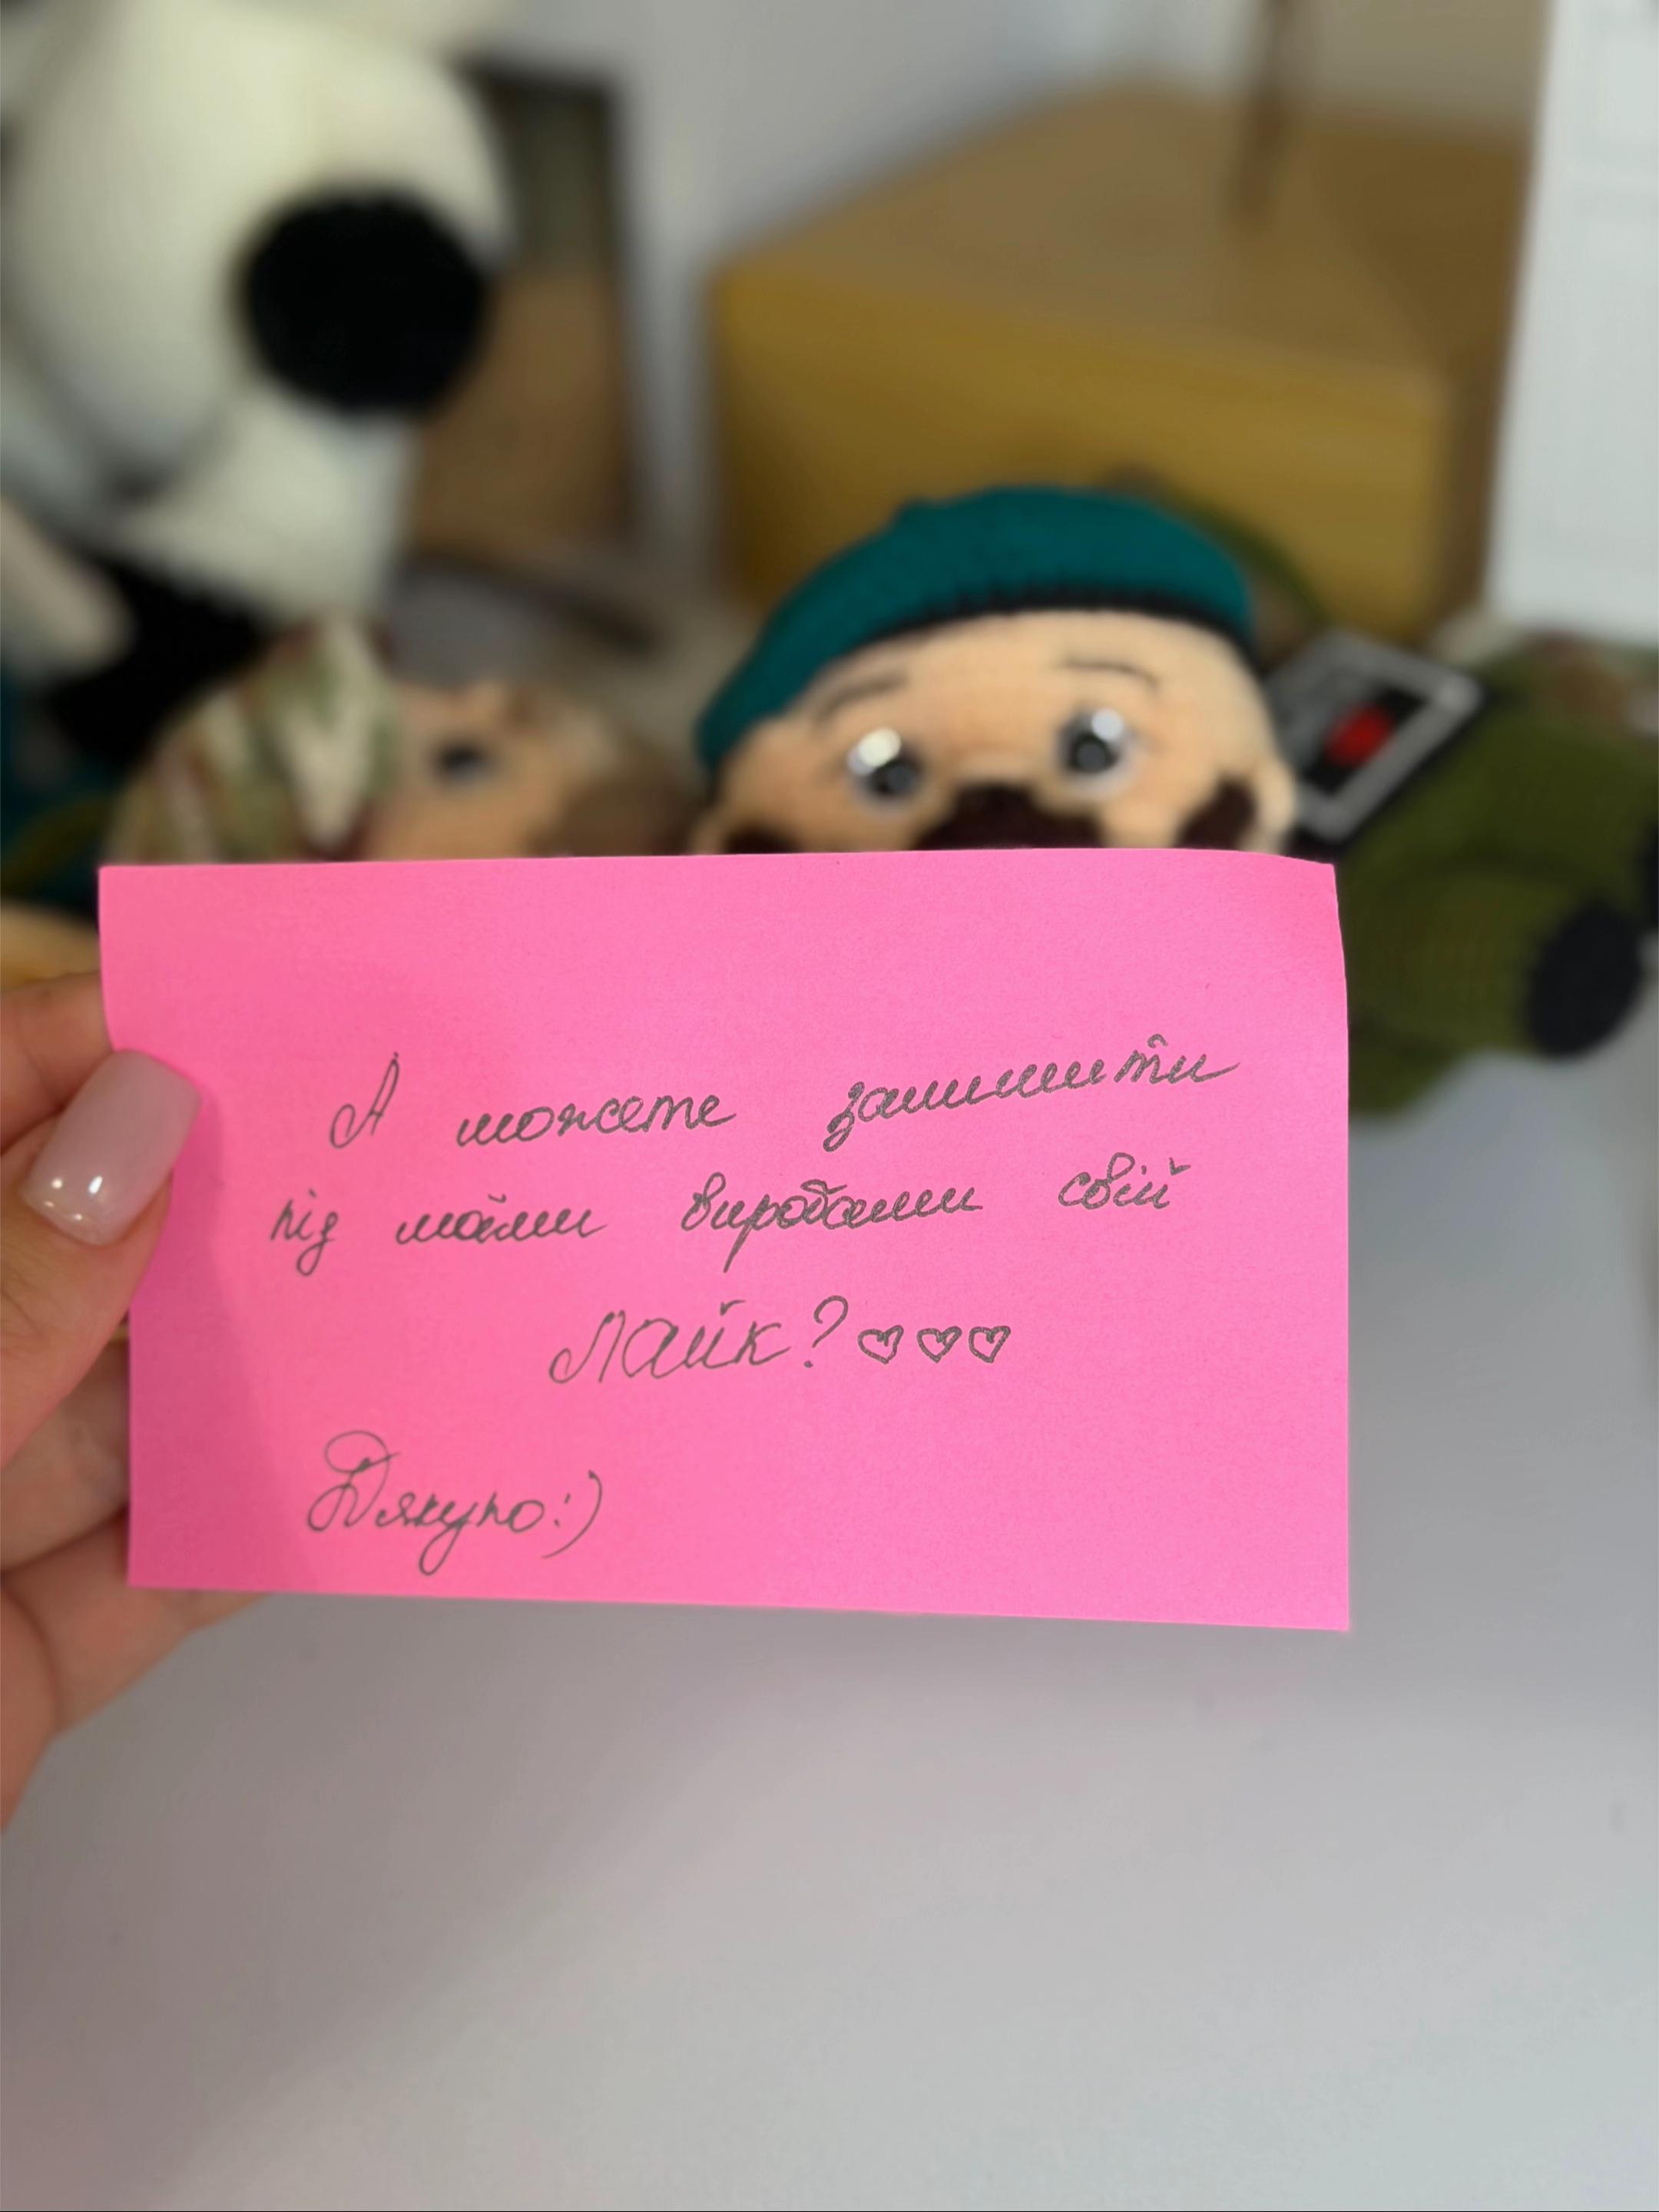 А можете залишити
під моїми виробами свій
Лайк? ♡♡♡
Дякую:)